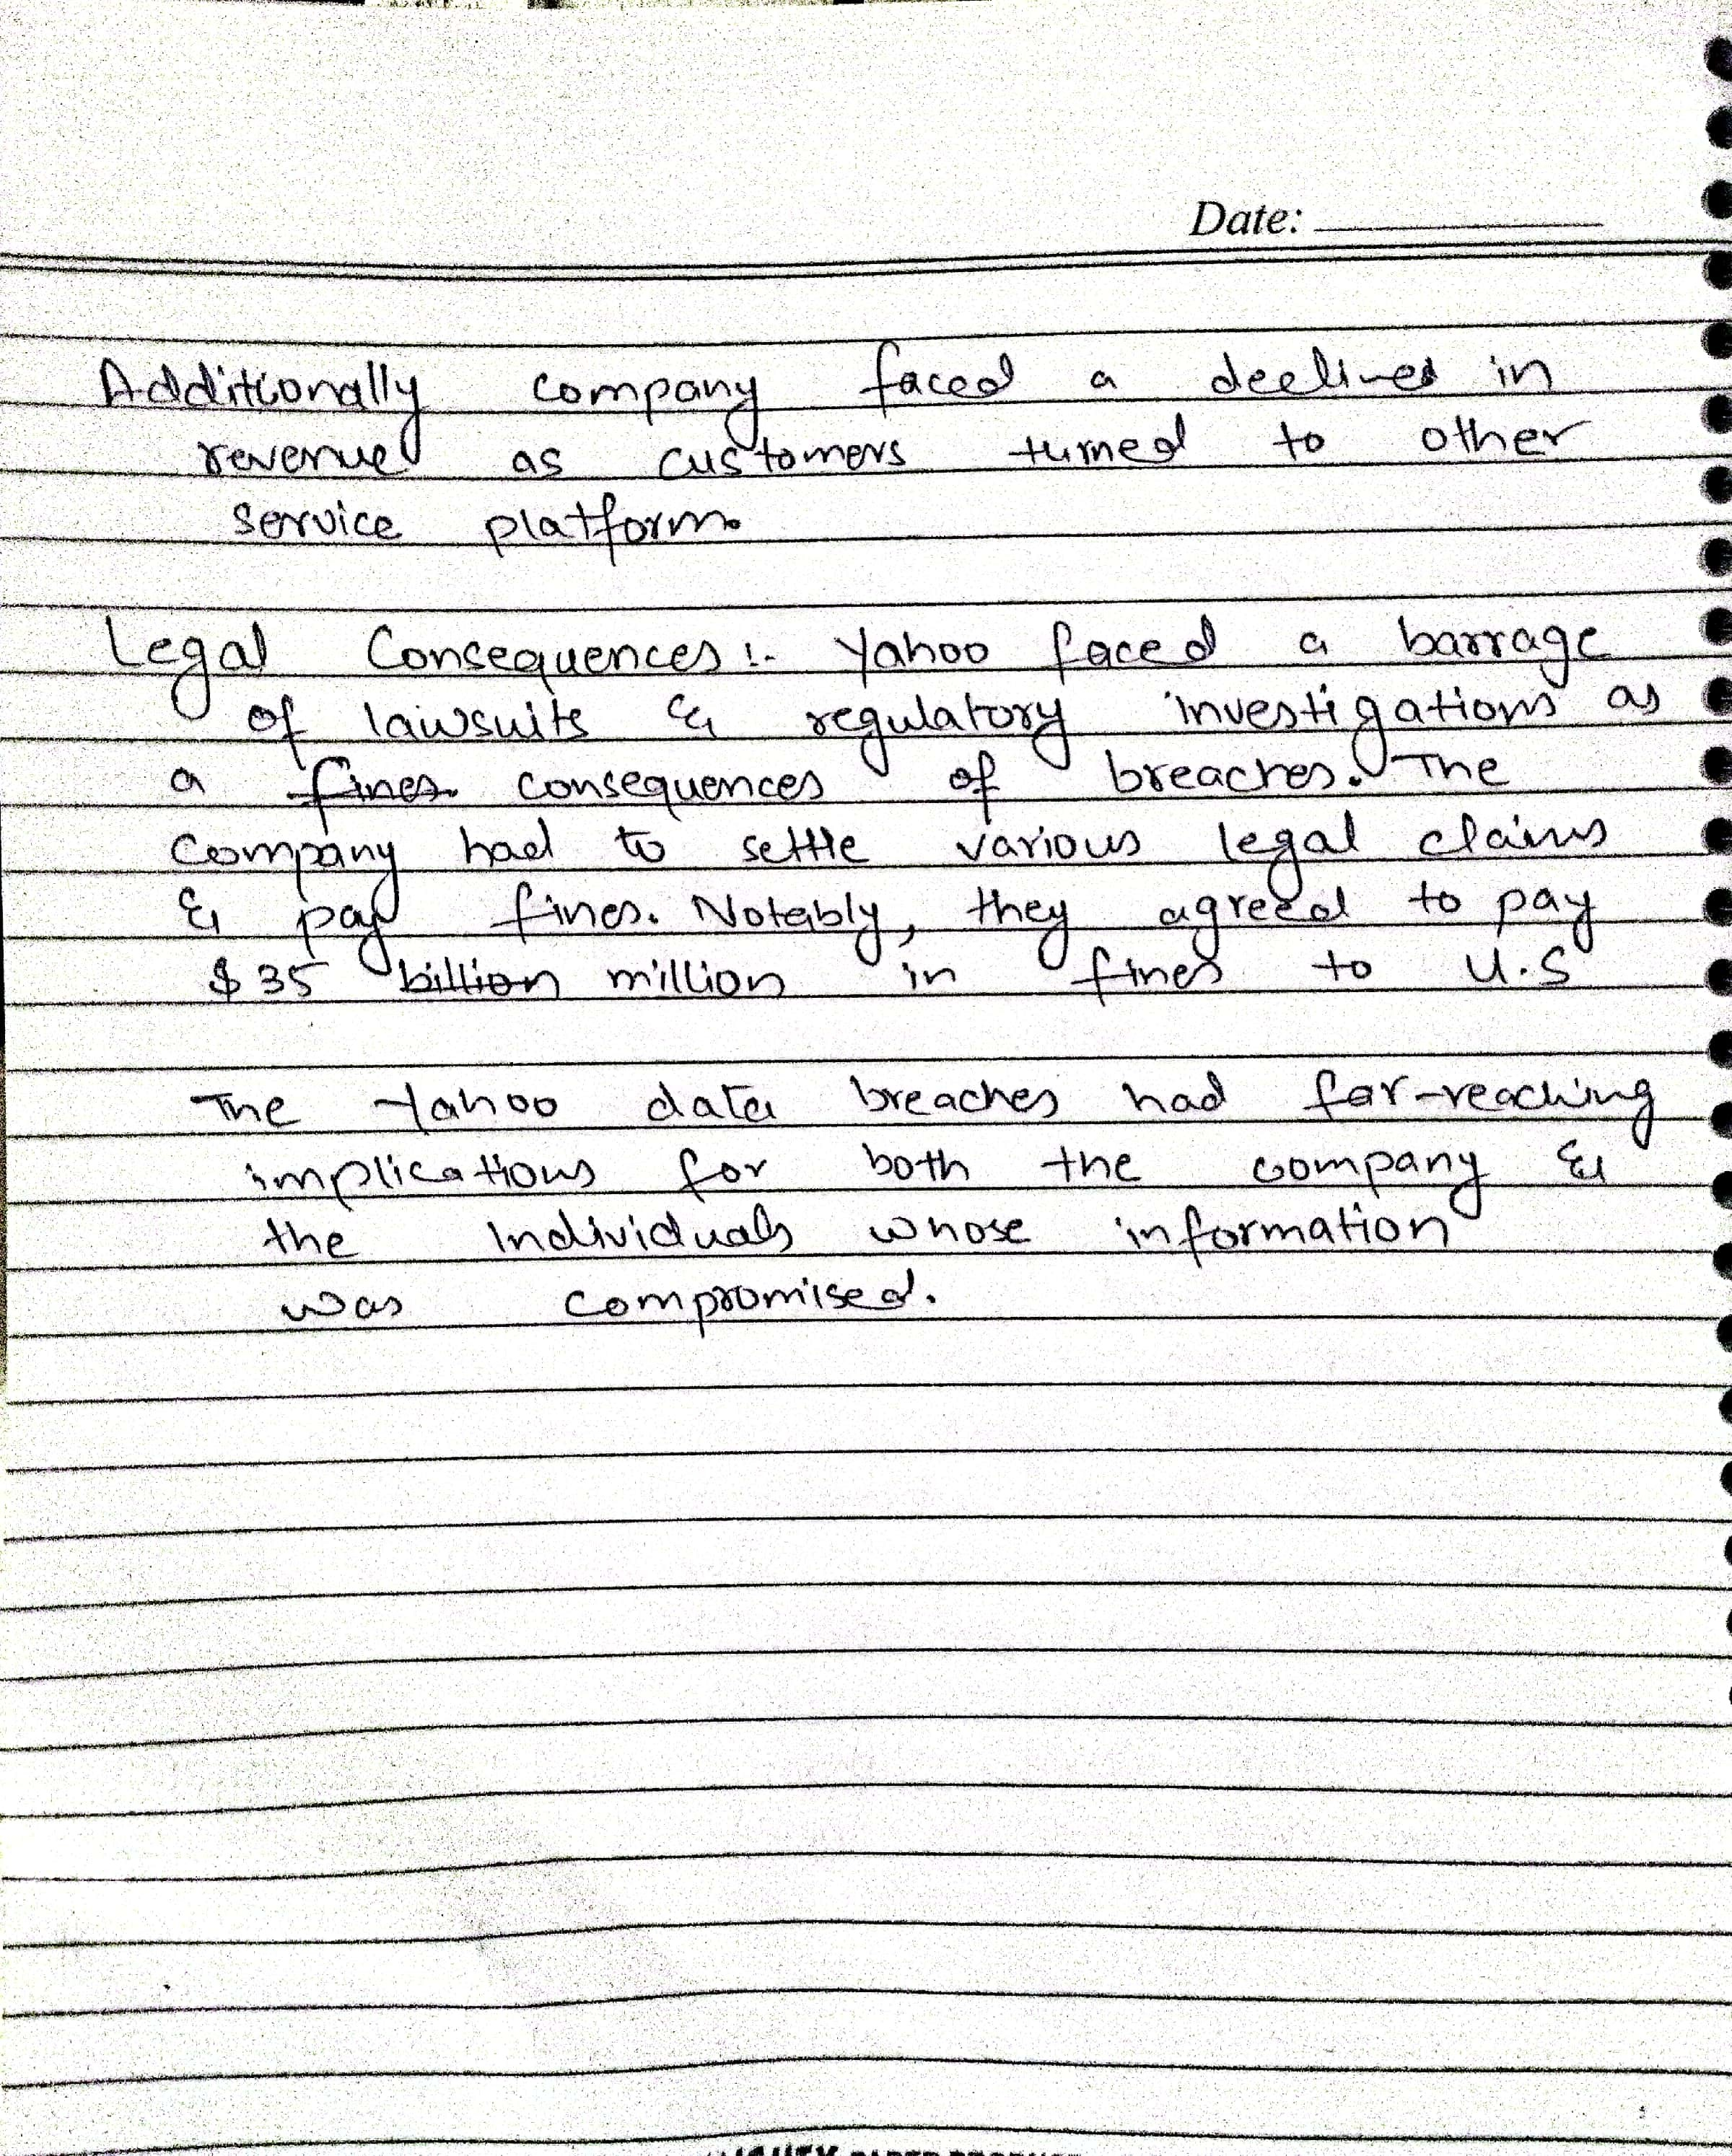 Date:
Additionally company faced a declined in
revenue as customers turned to other
service platform.
Legal Consequences :- Yahoo faced a barrage
of lawsuits & regulatory investigations as
a fines consequences of breaches. The
company had to settle various legal claims
& pay fines. Notably, they agreed to pay
$35 billion million in fines to U.S
The Yahoo data breaches had far-reaching
implications for both the company &
the Individuals whose information
was compromised.